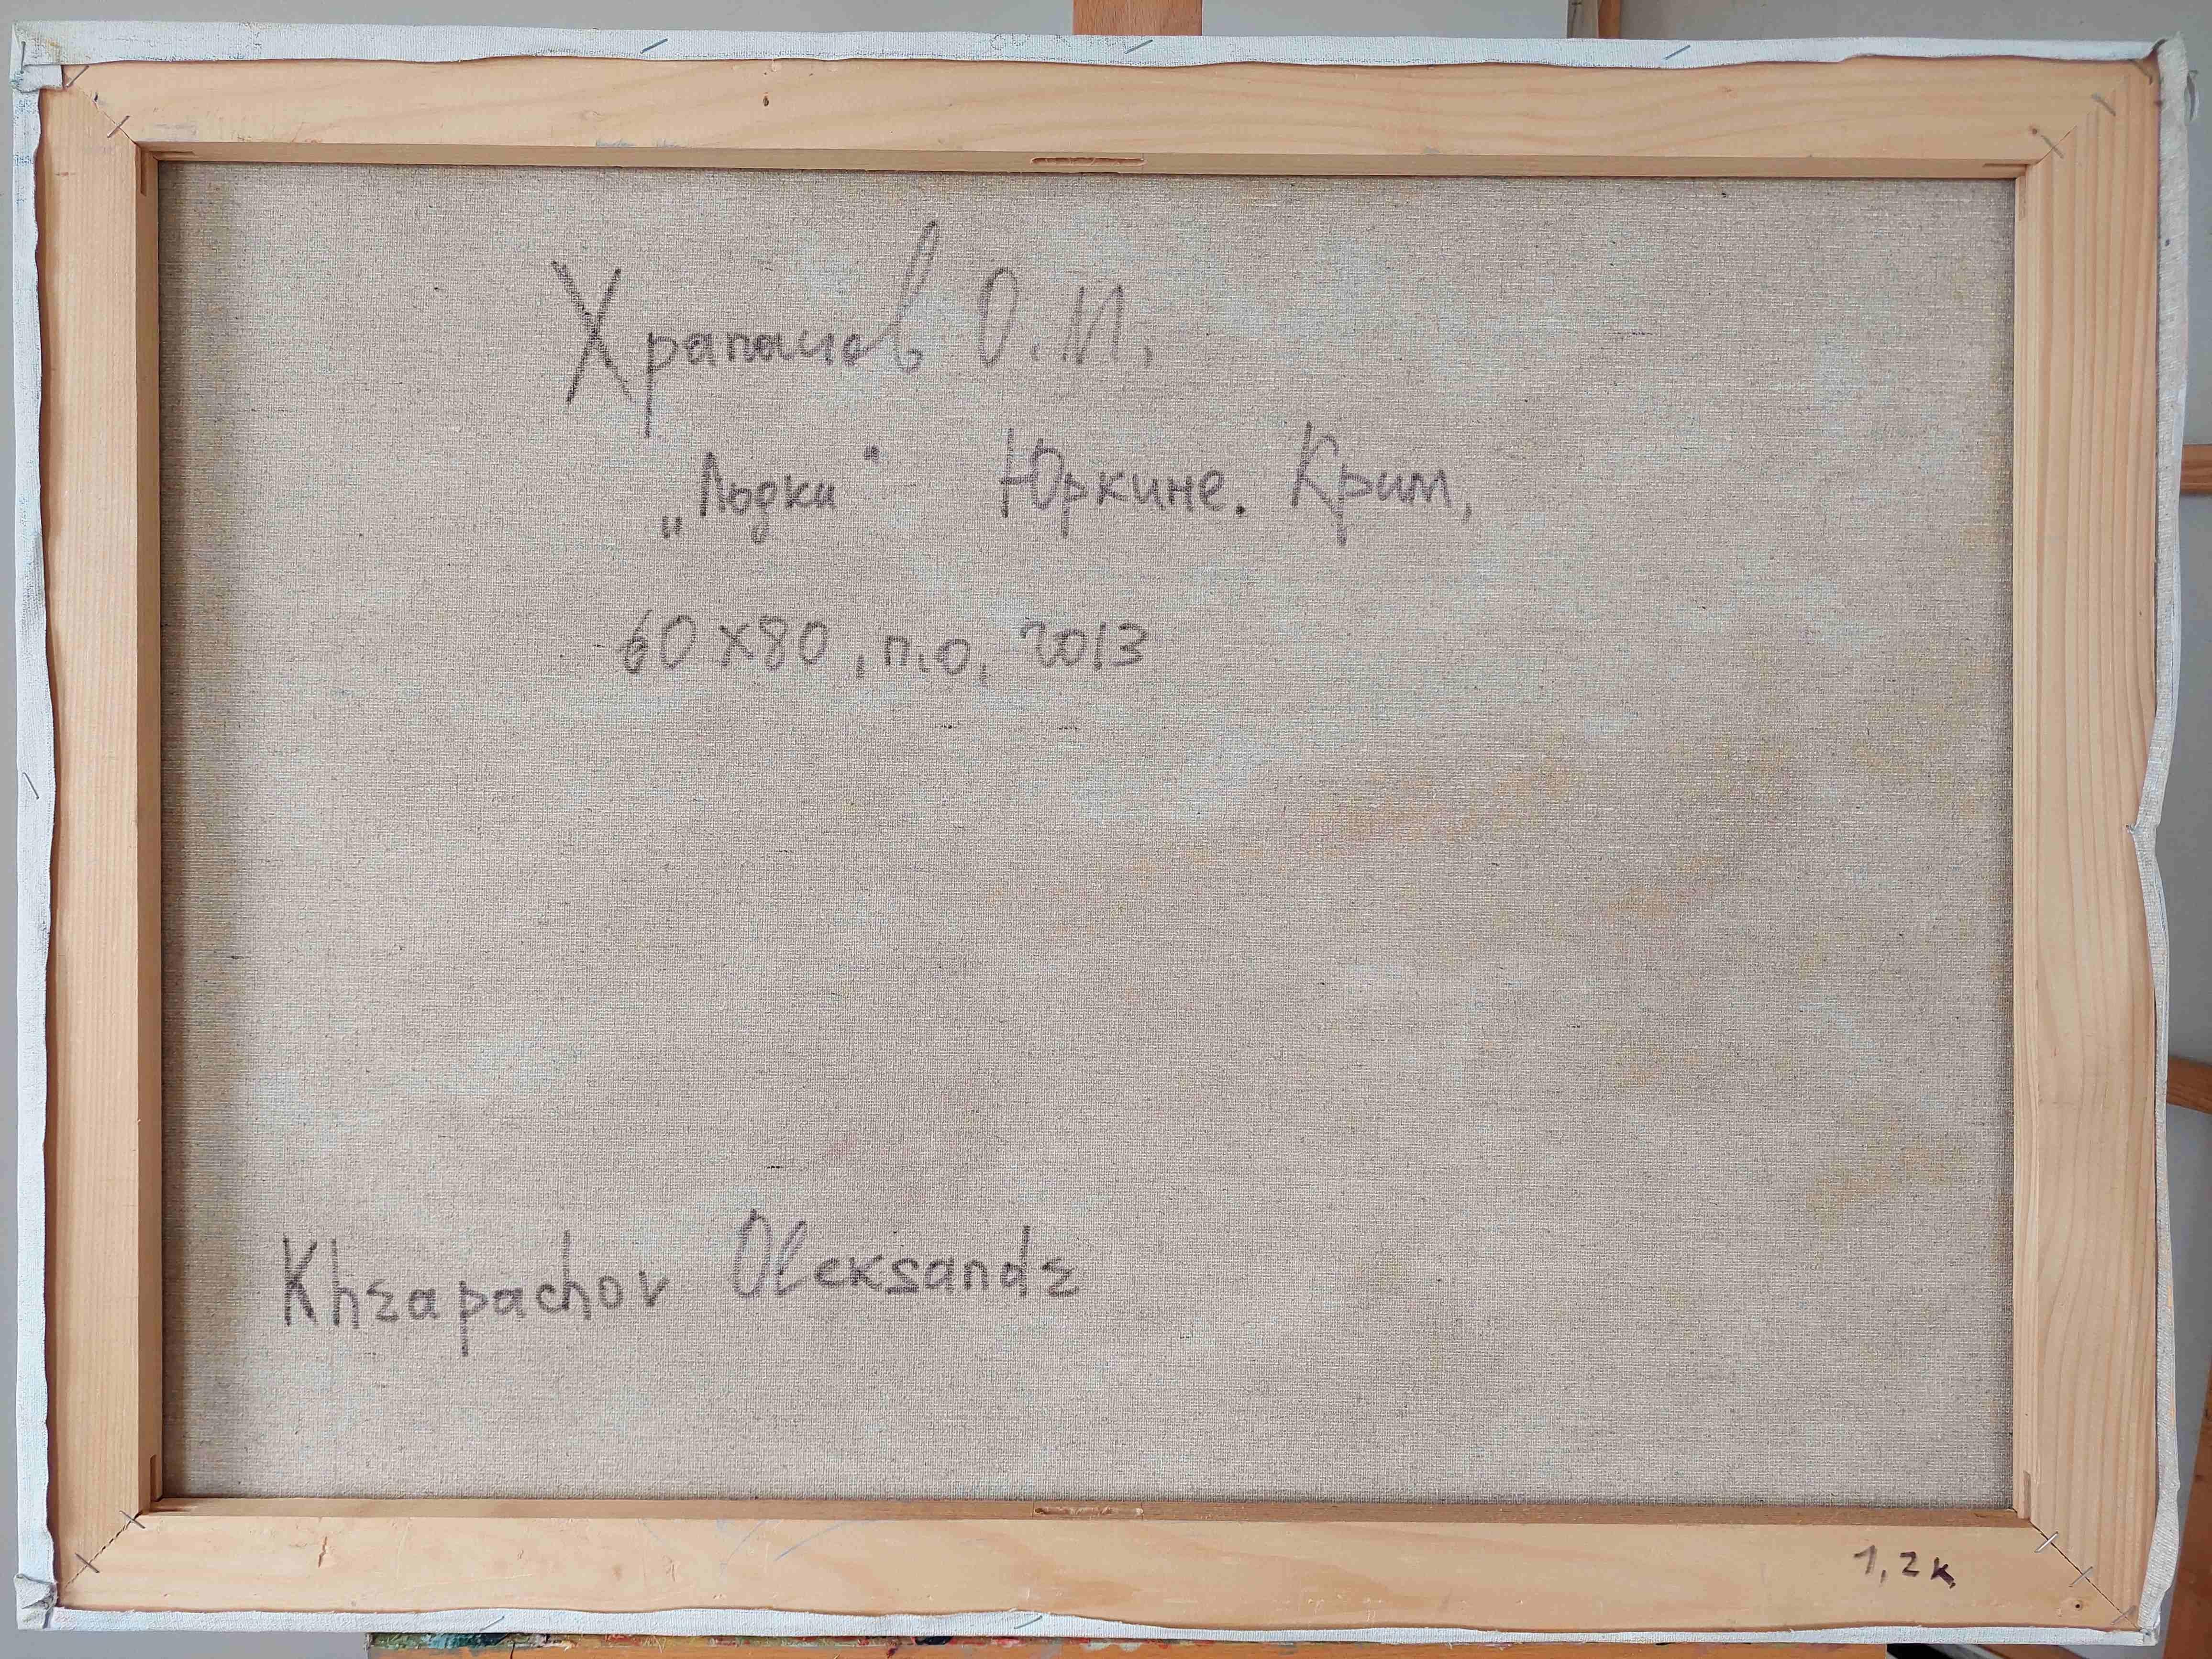 Храпачов О.М.
„Лодки“ Юркине. Крим,
60х80, п.о, 2013
Khrapachov Oleksandr
1,2к